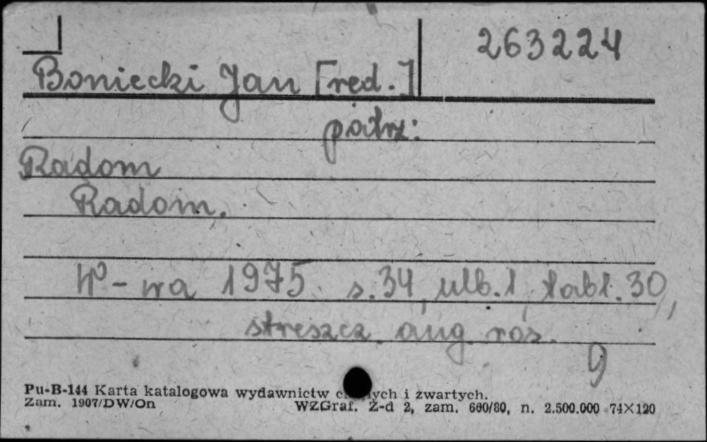 263224
Boniecki Jan [red.]
patrz:
Radom
Radom.
W-wa 1975. s. 34, ulb. 1, tabl. 30,
streszcz. ang. ros.
9
Pu-B-144 Karta katalogowa wydawnictw ych i zwartych.
Zam. 1907/DW/On WZGraf. Z-d 2, zam. 660/80, n. 2.500.000 74×120